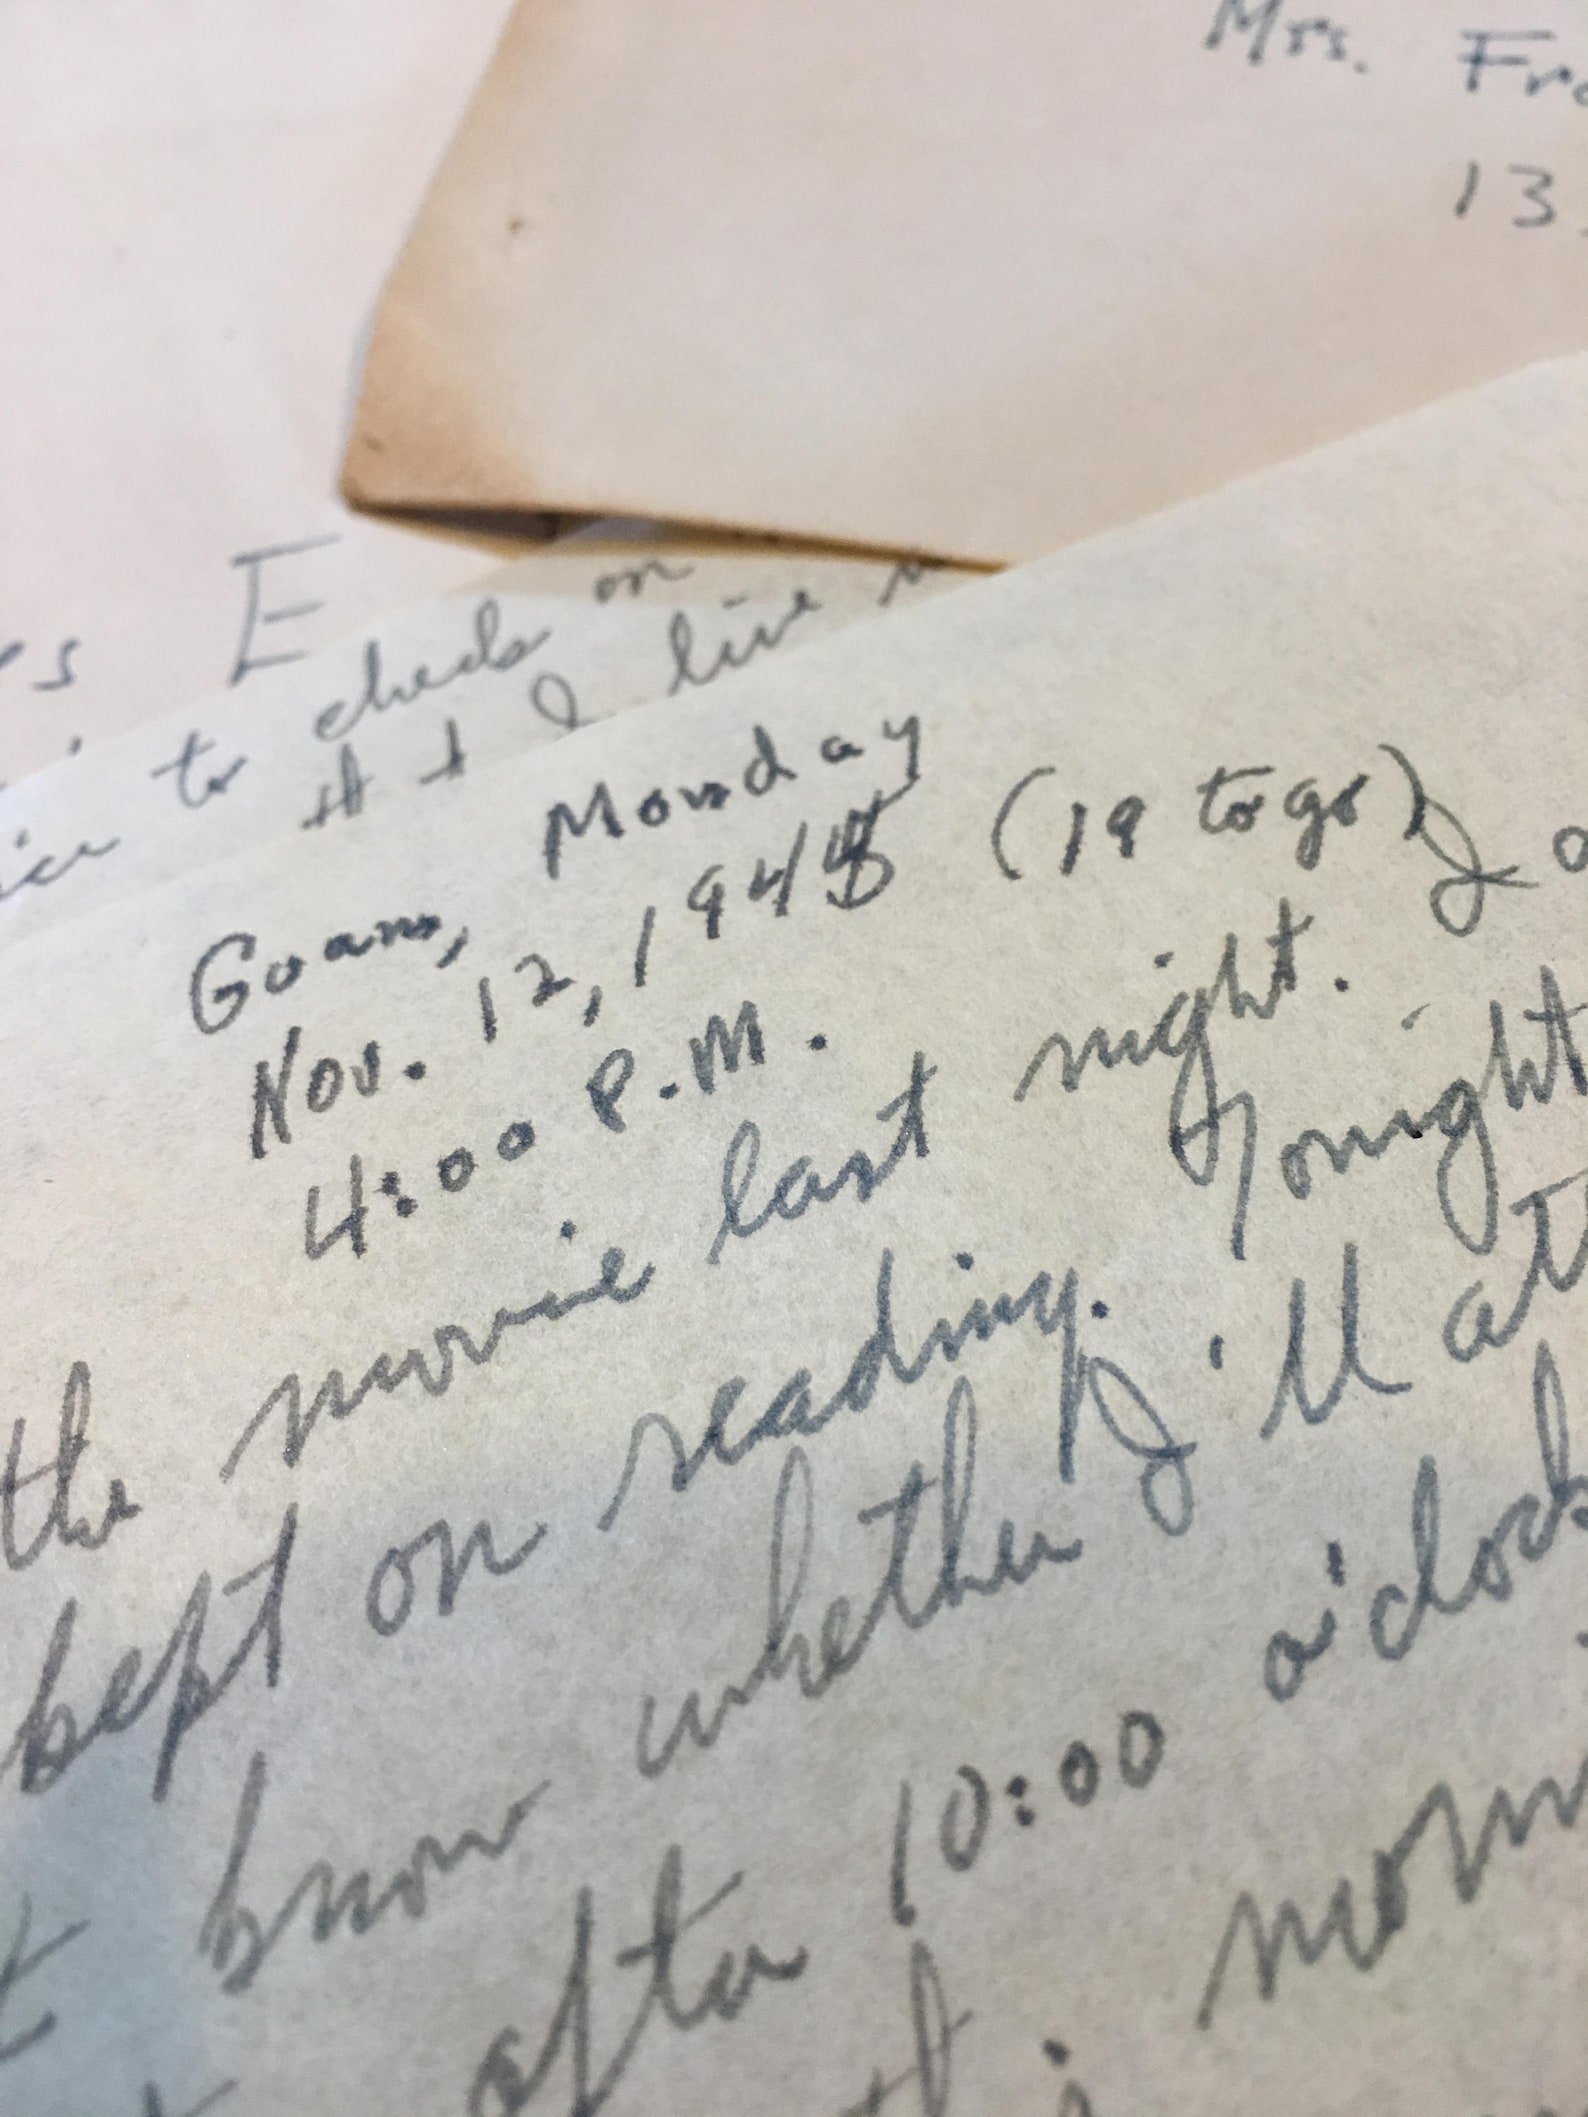 Mrs. Fro
13
es E
to check on
it I live
Guam, Monday
Nov. 12, 1945 (19 to go)
4:00 P.M. I
the movie last night.
kept on reading. Tonight
know whether I'll att
after 10:00 o'clock
morn